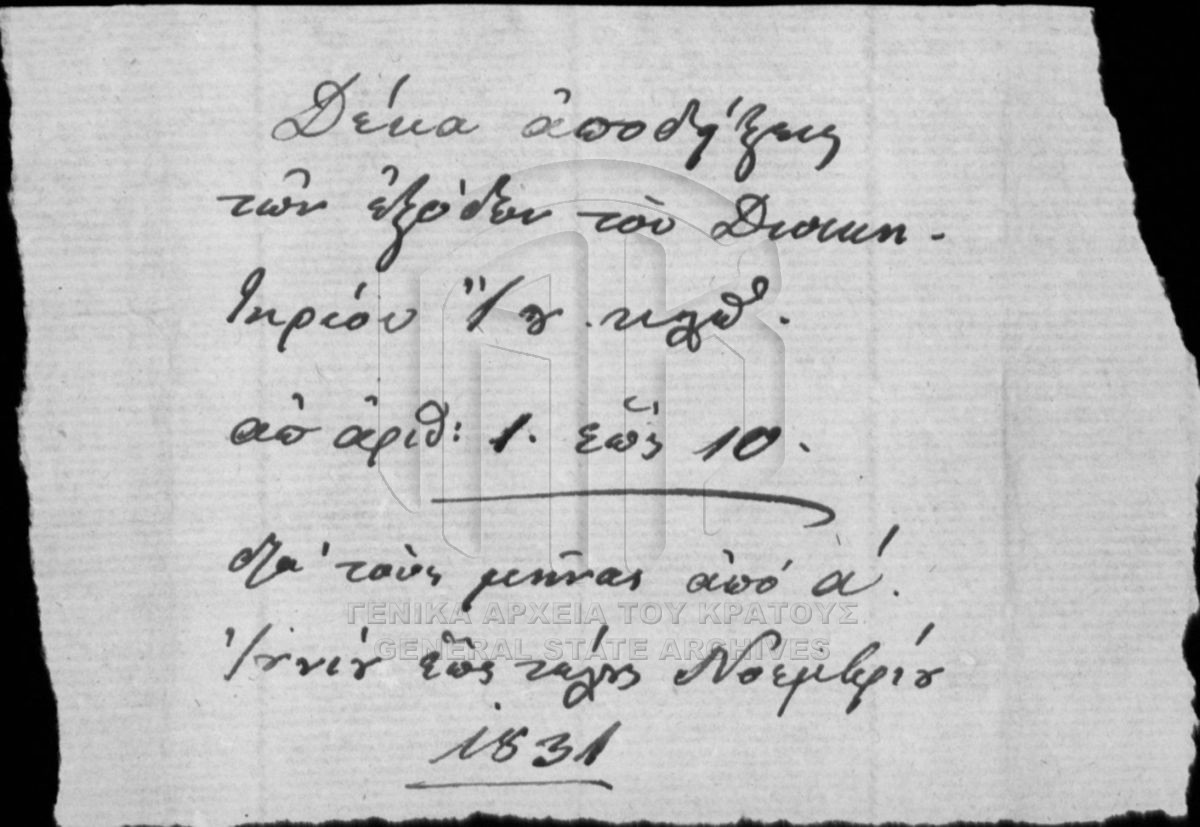 Δέκα ἀποδήξεις
τῶν ἐξόδων τοῦ Διοικη-
τηρίου Ἴου κλπ.
ἀπ ἀριθ: 1. ἕως 10.
διὰ τοὺς μῆνας ἀπό α΄.
ΓΕΝΙΚΑ ΑΡΧΕΙΑ ΤΟΥ ΚΡΑΤΟΥΣ
GENERAL STATE ARCHIVES
Ἰουνίου ἕως τέλους Νοεμβρίου
1831